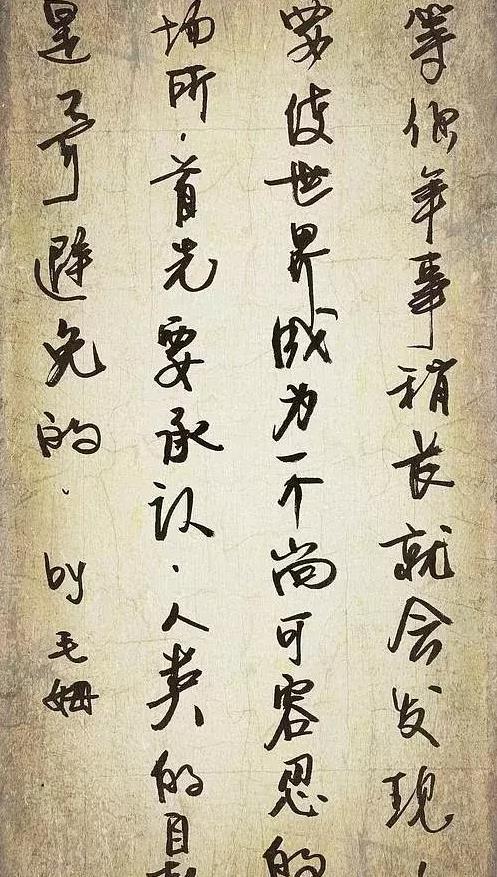 等你年事稍长就会发现，
要使世界成为一个尚可容忍的
场所，首先要承认，人类的自
是不可避免的. by 毛姆